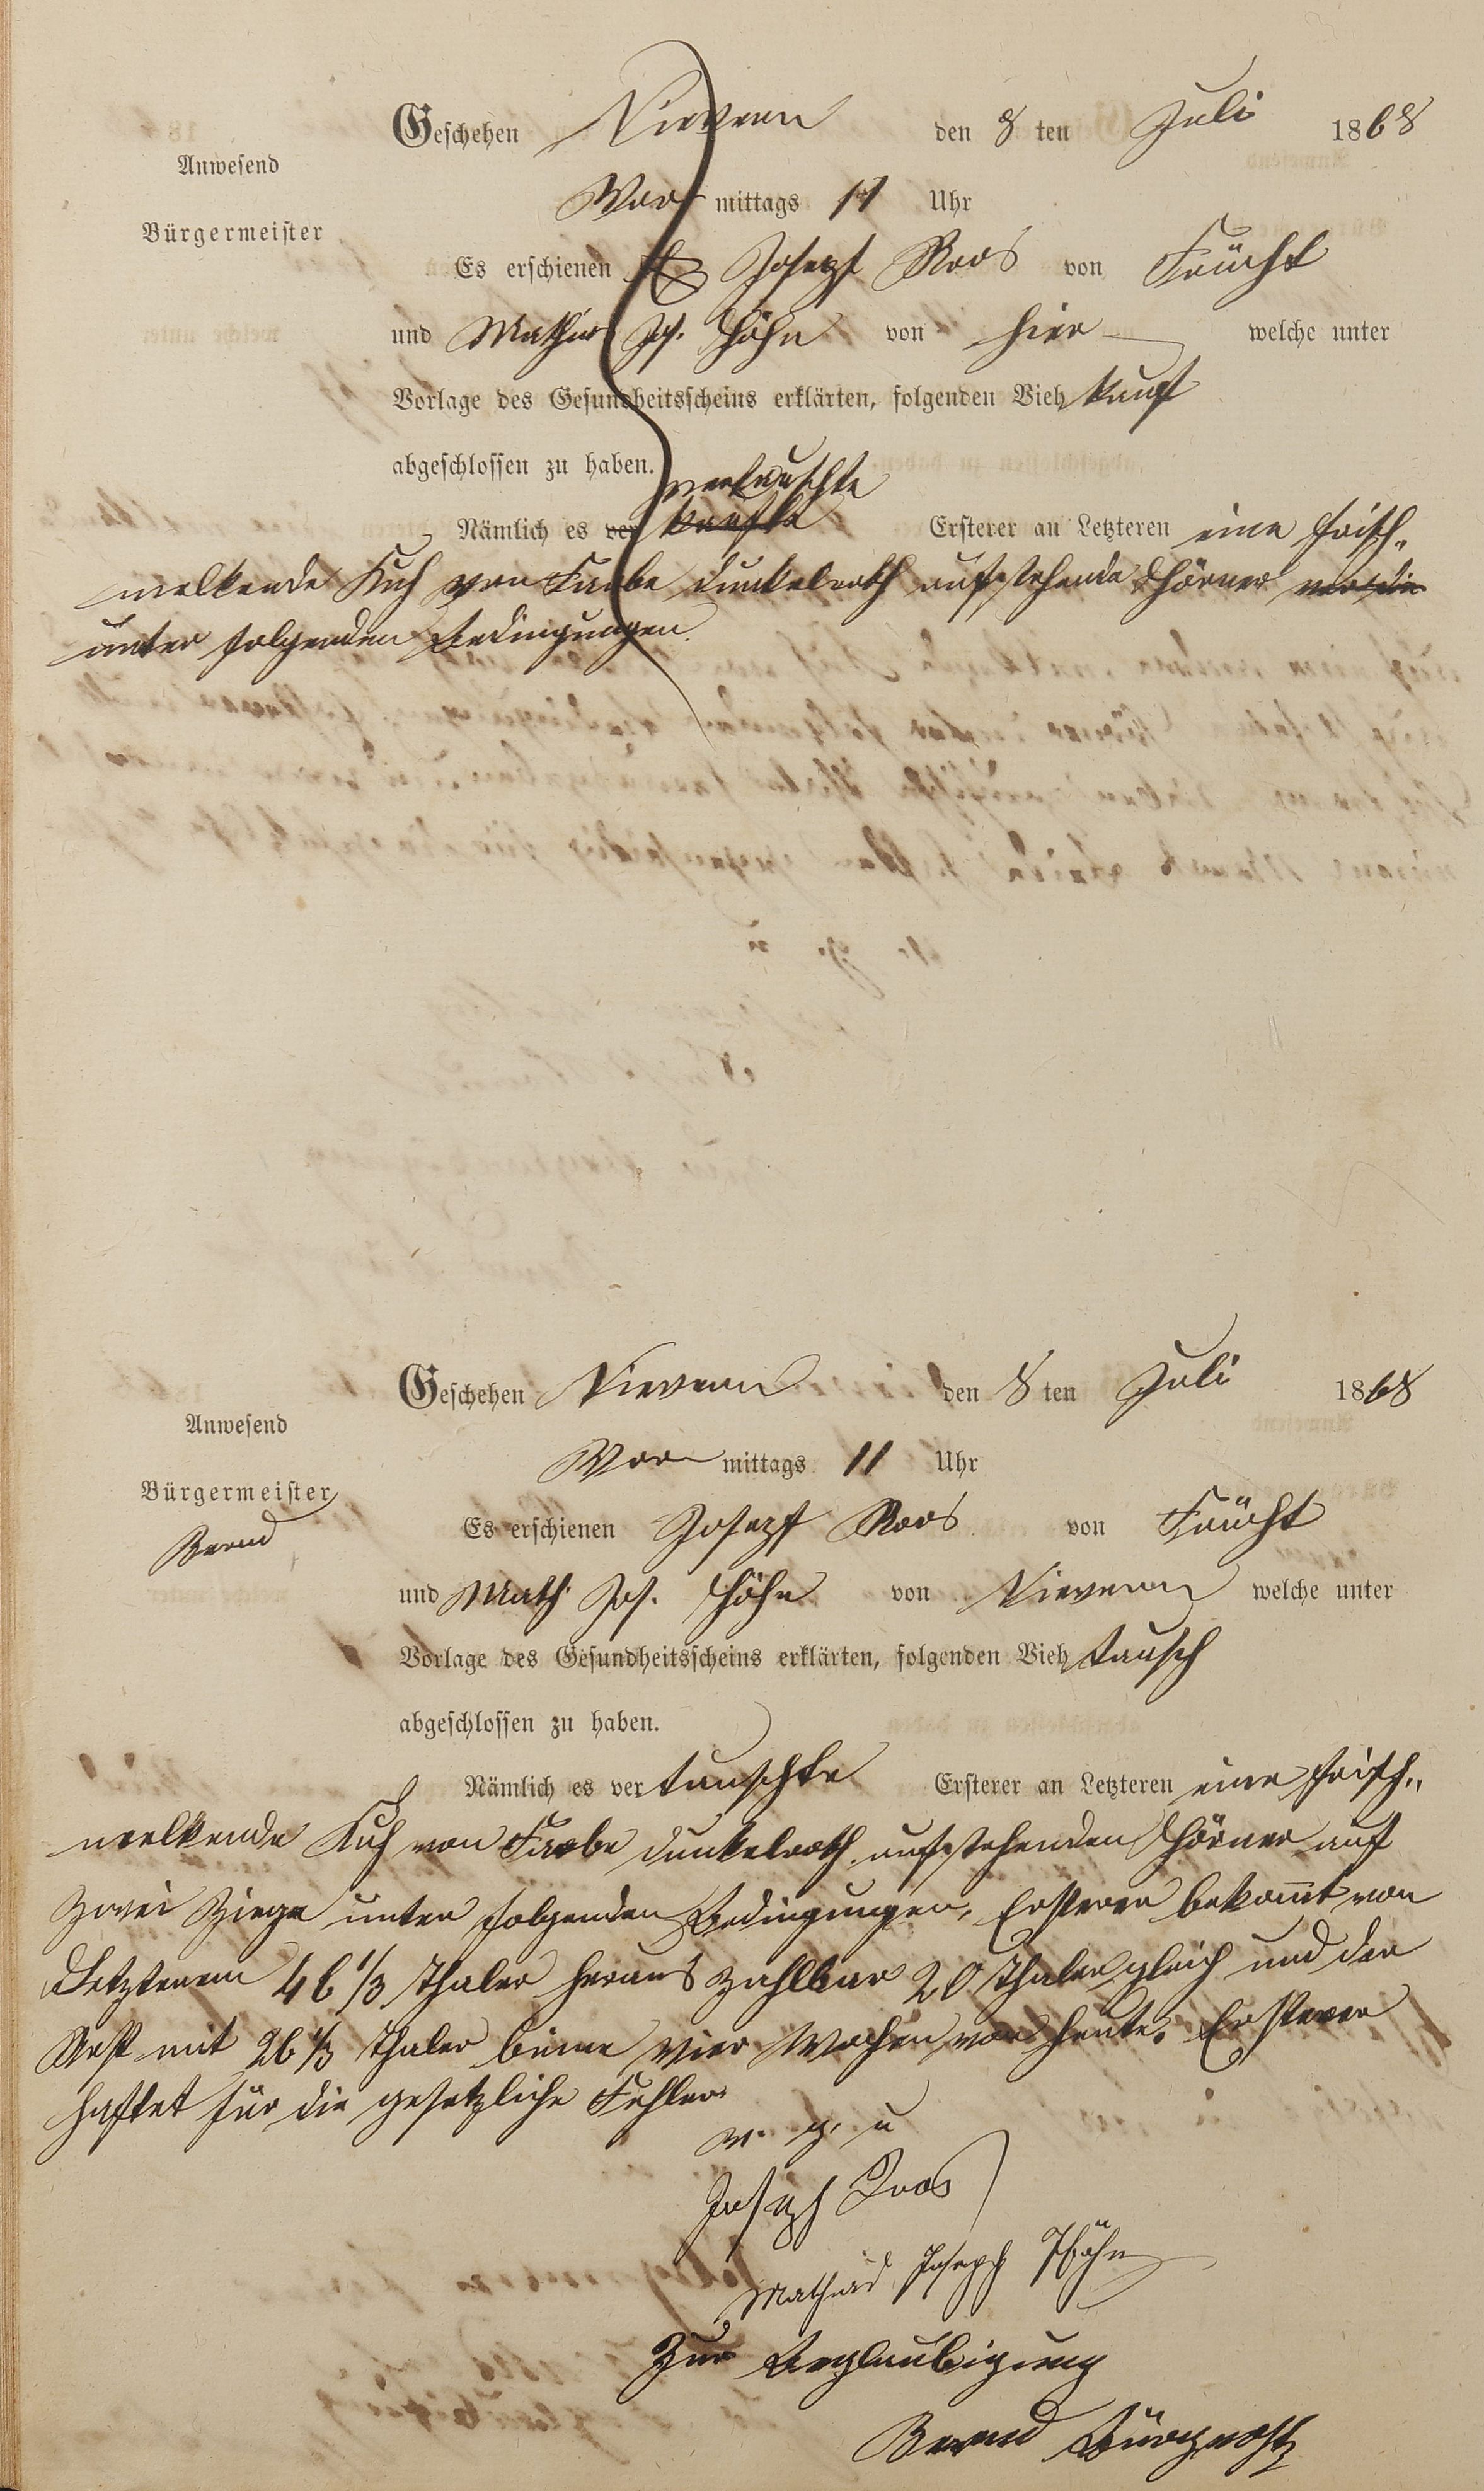 Geschehen Nievern den 8 ten Juli 1868
Anwesend
Vor mittags 11 Uhr
Bürgermeister
Es erschienen Joseph Roos von Frücht
und Mathias Jos. Höhn von hier welche unter
Vorlage des Gesundheitsscheins erklärten, folgenden Vieh kauf
abgeschlossen zu haben.
vertauschte
Nämlich es ver kaufte Ersterer an Letzteren eine frisch„
melkende Kuh von Farbe dunkelroth aufstehende Hörner
unter folgenden Bedingungen.
Geschehen Nievern den 8 ten Juli 1868
Anwesend
Vor mittags 11 Uhr
Bürgermeister
Bernd
Es erschienen Joseph Roos von Frücht
und Math. Jos. Höhn von Nievern welche unter
Vorlage des Gesundheitsscheins erklärten, folgenden Vieh tausch
abgeschlossen zu haben.
Nämlich es ver tauschte Ersterer an Letzteren eine frisch„
melkende Kuh von Farbe dunkelroth aufstehenden Hörner auf
zwei Ziege unter folgenden Bedingungen, Ersterer bekommt von
Letzterem 46 1/3 Thaler heraus zahlbar 20 Thaler gleich und der
Rest mit 26 1/3 Thaler binne vier Wochen von heute. Ersterer
haftet für die gesetzliche Fehler
v. g. u
Joseph Roos
Mathias Joseph Höhn
Zur Beglaubigung
Bernd Bürgermstr